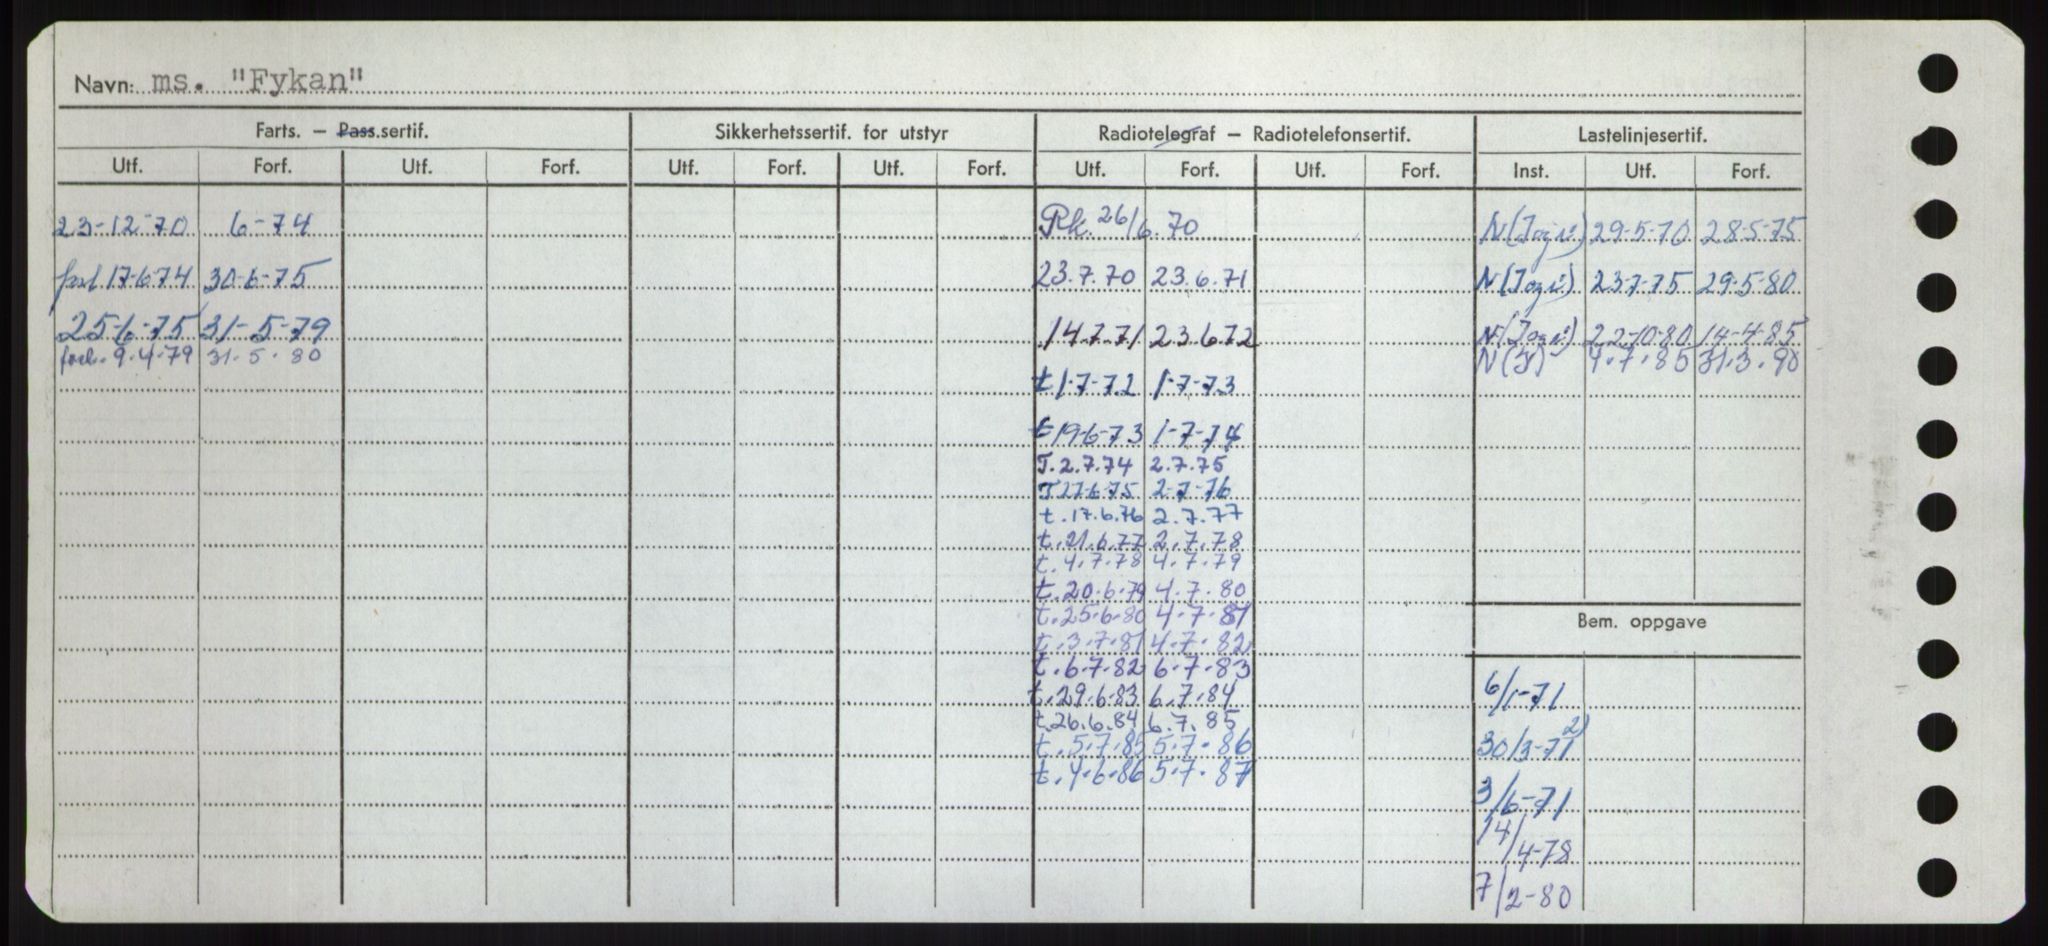 Navn: ms. "Fykan"
Farts. – Pass.sertif. Sikkerhetssertif. for utstyr Radiotelegraf – Radiotelefonsertif. Lastelinjesertif.
Utf. Forf. Utf. Forf. Utf. Forf. Utf. Forf. Utf. Forf. Utf. Forf. Inst. Utf. Forf.
23-12-70 6-74 Pk. 26/6.70 N(Jøgri) 29-5-70 28-5-75
forl 17-6-74 30-6-75 23.7.70 23.6.71 N(Jøgri) 23-7-75 29-5-80
25-6-75 31-5-79 14.7.71 23.6.72 N(Jøgri) 22-10-80 14-4-85
forl. 9.4.79 31.5.80 N(J) 4.7.85 31.3.90
t 1-7-72 1-7-73
t 19-6-73 1-7-74
T. 2.7.74 2.7.75
T 27-6-75 2-7-76
t. 17.6.76 2.7.77
t. 21.6.77 2.7.78
t. 4.7.78 4.7.79
t. 20.6.79 4.7.80
t. 25.6.80 4.7.81
t. 3.7.81 4.7.82
t. 6.7.82 6.7.83
t. 29.6.83 6.7.84
t. 26.6.84 6.7.85
t. 5.7.85 5.7.86
t. 4.6.86 5.7.87
Bem. oppgave
6/1-71
30/3-71 2)
3/6-71
14/4-78
7/2-80